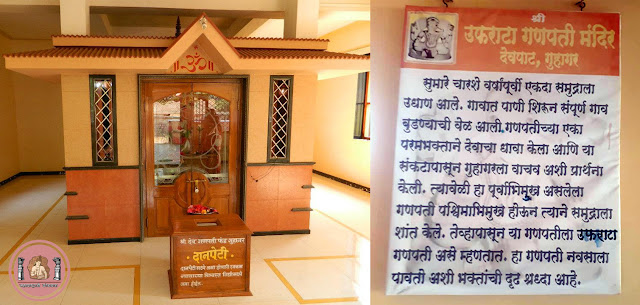 ॐ
श्री देव गणपती फंड गुहागर
दानपेटी
श्री
उफराटा गणपती मंदिर
देवपाट, गुहागर
सुमारे चारशे वर्षांपूर्वी एकदा समुद्राला
उधाण आले. गावात पाणी शिरून संपूर्ण गाव
बुडण्याची वेळ आली.गणपतीच्या एका
परमभक्ताने देवाचा धावा केला आणि या
संकटापासून गुहागरला वाचव अशी प्रार्थना
केली. त्यावेळी हा पूर्वाभिमुख असलेला
गणपती पश्चिमाभिमुख होऊन त्याने समुद्राला
शांत केले. तेव्हापासून या गणपतीला उफराटा
गणपती असे म्हणतात. हा गणपती नवसाला
पावतो अशी भक्तांची दृढ श्रध्दा आहे.